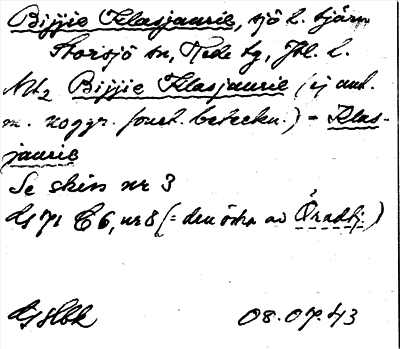 Bijjie Klasjaurie, sjö l. tjärn
Storsjö sn, Rede tg, Jtl. l.
Ut₂ Bijjie Klasjaurie (ej ant.
m. noggr. fonet. beteckn.) = Klas-
jaurie
Se skiss nr 3
71 C6, nr 8 (= den östra av Öradtj.)
08.07.43